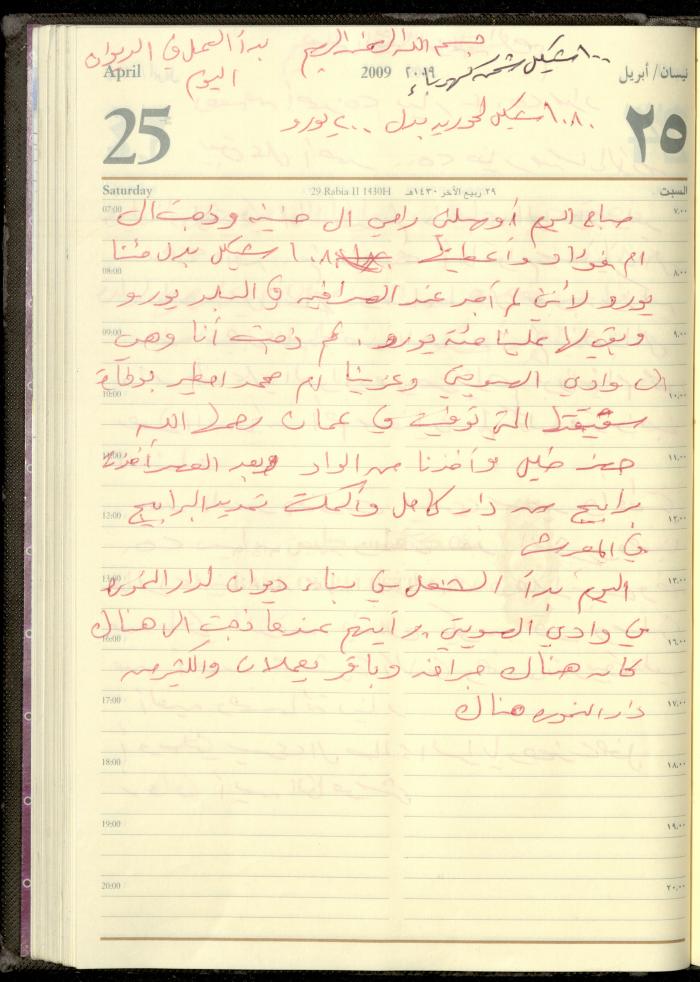 بسم الله الرحمن الرحيم
بدأ العمل في الديوان
اليوم
١٠٠ شيكل شحن كهرباء
April
2009 ٢٠٠٩
نيسان/أبريل
25
٢٥
١٠٨٠ شيكل لحوريه بدل ٢٠٠ يورو
Saturday
29 Rabia II 1430H
٢٩ ربيع الآخر ١٤٣٠هـ
السبت
07:00 ٧,٠٠
صباح اليوم أوصلني رامي الى وذهبت الى
ام فؤاد وأعطيتها ١٠٨٠ شيكل بدل مئتا
08:00 ٨,٠٠
يورو لأنني لم أجد عند الصرافيه في البلد يورو
09:00 ٩,٠٠
وبقي لها علينا مئة يورو. ثم ذهبت أنا وهي
الى وادي الصويتي وعزينا ام محمد بوفاة
10:00 ١٠,٠٠
شقيقتها التي توفيت في عمان رحمها الله
11:00 ١١,٠٠
وأخذنا من الواد وبعد العصر أخذت
12:00 ١٢,٠٠
برابيج من دار كامل وأكملت تمديد البرابيج
في المعرش
13:00 ١٣,٠٠
اليوم بدأ الشغل في بناء ديوان لدار النموره
في وادي الصويتي رأيتهم عندما ذهبت الى هناك
16:00 ١٦,٠٠
كان هناك جرافه وباقر يعملان والكثير من
17:00 ١٧,٠٠
دار النموره هناك
18:00 ١٨,٠٠
19:00 ١٩,٠٠
20:00 ٢٠,٠٠